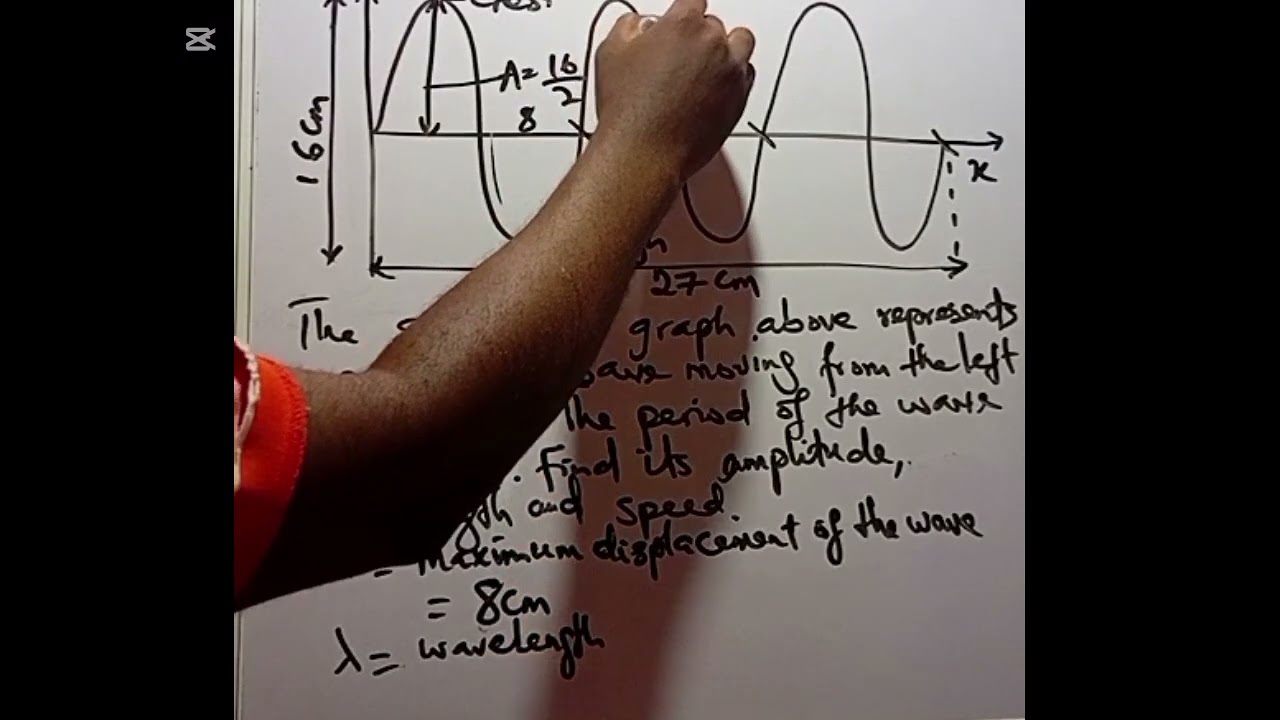 Crest
A = 16/2
8
16cm
x
27cm
The graph above represents
wave moving from the left
The period of the wave
. Find its amplitude,
and speed.
= maximum displacement of the wave
= 8cm
λ = wavelength